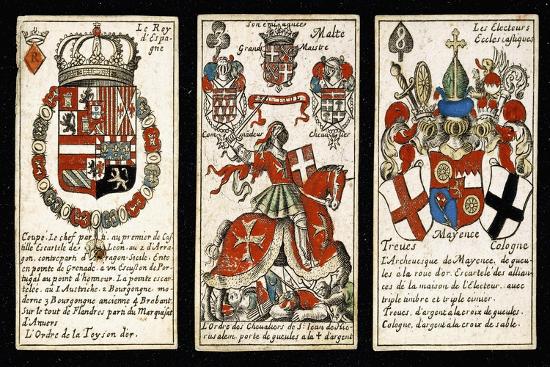 R
Le Roy
d'Espa-
gne
Coupé. Le chef parti. au premier de Cas
tille Escartele de Leon. au 2 d'Arra-
gon. contreparti d'Aragon-Sicile. Enté
en pointe de Grenade. a vn Escusson de Por
tugal au point d'honneur. La pointe escar-
telée. au 1 Austriche. 2 Bourgongne mo-
derne 3 Bourgongne ancienne 4 Brabant.
Sur le tout de Flandres parti du Marquisat
d'Anvers
L'Ordre de la Toyson d'or.
Malte
Grand Maistre
Com mandeur Cheualier
L'Ordre des Cheualiers de St. Iean de Hie-
rusalem, porte de gueules a la + d'argent
8
Les Electeurs
Ecclesiastiques
Mayence
Treues Cologne
L'Archeuesque de Mayence, de gueu-
les à la roue d'or. Escartelé des allian-
ces de la maison de l'Electeur. auec
triple timbre et triple cimier.
Treues, d'argent à la croix de gueules.
Cologne, d'argent à la croix de sable.